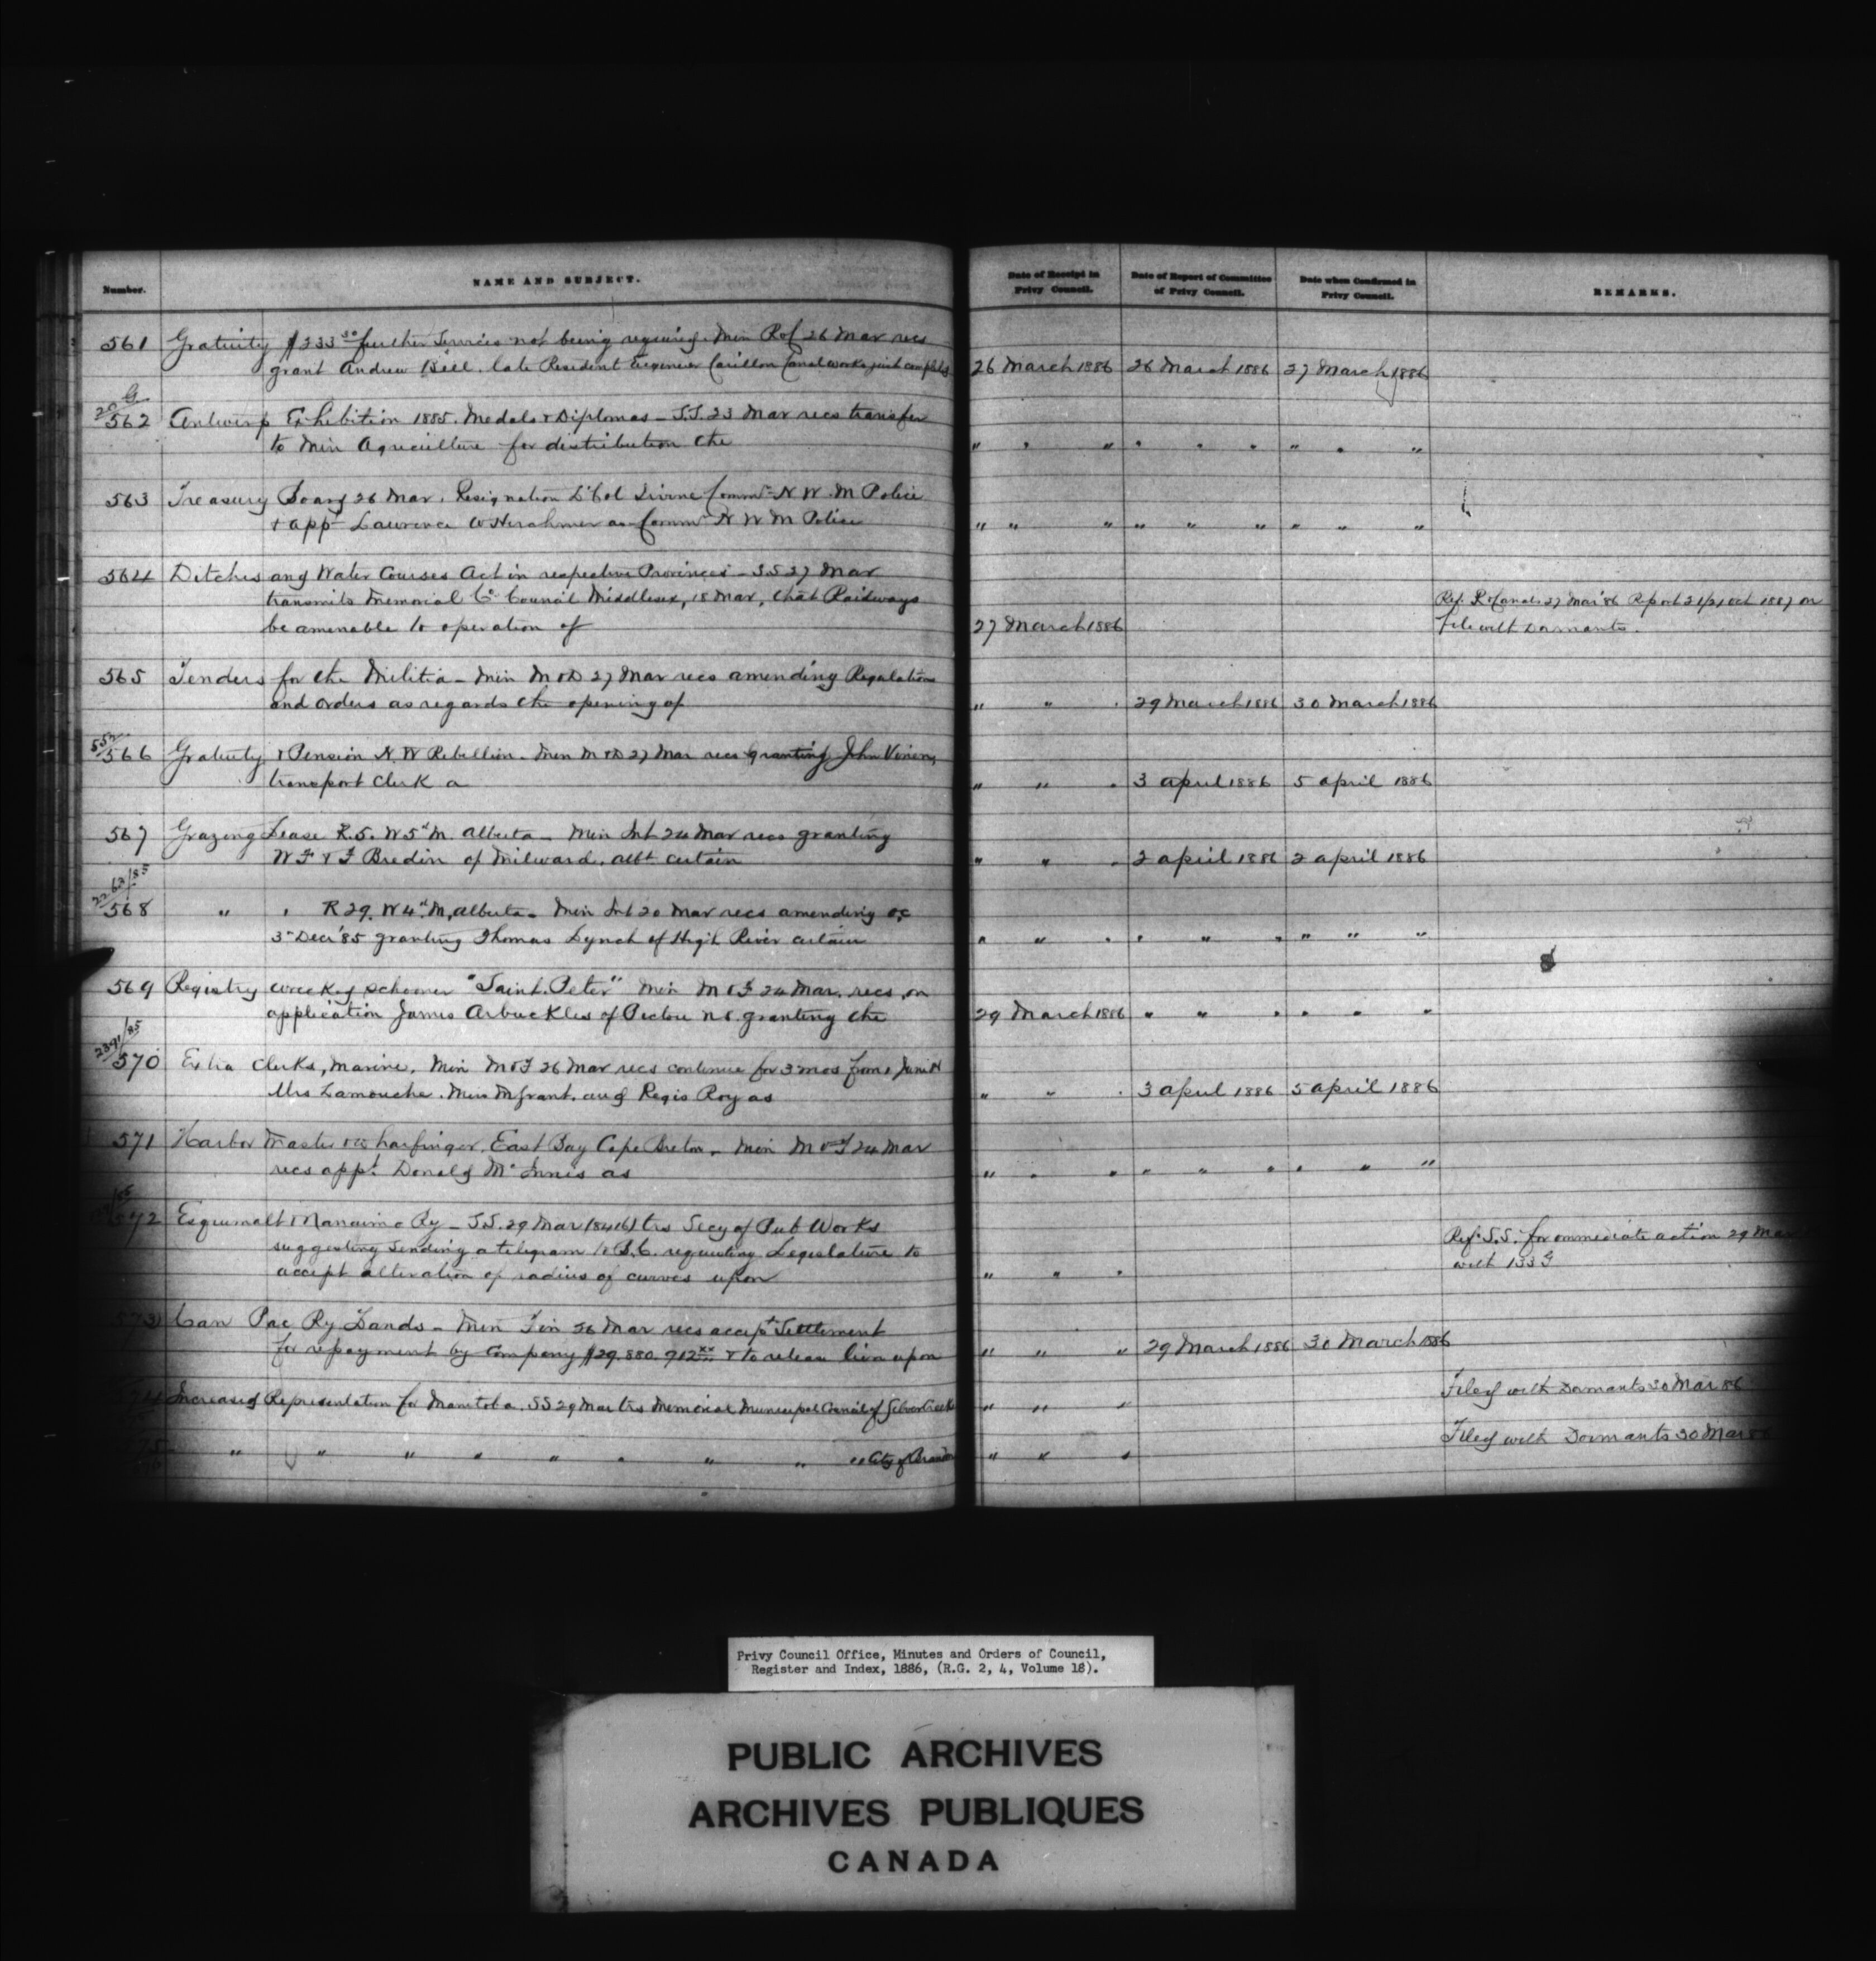 Number. NAME AND SUBJECT. Date of Receipt in Privy Council. Date of Report of Committee of Privy Council. Date when Confirmed in Privy Council. REMARKS.
561 Gratuity $233 50 further Services not being required. Min Rof 26 Mar recs
grant Andrew Bell late Resident Engineer Carillon Canal works just completed 26 March 1886 26 March 1886 27 March 1886
20 G
562 Antwerp Exhibition 1885. Medals & Diplomas – S.S. 23 Mar recs transfer
to Min Agriculture for distribution the " " " " " " " " "
563 Treasury Board 26 Mar. Resignation Lt Col Irvine Commr N W M Police
& appt Lawrence W Herchmer as Commr N W M Police " " " " " " " " "
564 Ditches and Water Courses Act in respective Provinces – S.S 27 Mar
transmits Memorial Co Council Middlesex, 18 Mar, that Railways Ref. R & Canals 27 Mar '86 Report 21/21 Oct 1887 on
be amenable to operation of 27 March 1886 file with Dormants.
565 Tenders for the Militia – Min M & D 27 Mar recs amending Regulations
and orders as regards the opening of " " " 29 March 1886 30 March 1886
552
566 Gratuity & Pension N. W Rebellion. Min M & D 27 Mar recs granting John
transport Clerk a " " " 3 April 1886 5 April 1886
567 Grazing Lease R. 5. W 5th M. Alberta – Min Int 24 Mar recs granting
W F & F Bredin of Milward, Alta certain " " " 2 April 1886 2 April 1886
2262/85
568 " " R 29. W 4th M, Alberta – Min Int 20 Mar recs amending O.C
3 Decr '85 granting Thomas Lynch of High River certain " " " " " " " " "
569 Registry wrecked schooner "Saint Peter" Min M & F 24 Mar. recs on
application James Arbuckles of Pictou N.S. granting the 29 March 1886 " " " " " "
2391/85
570 Extra Clerks, Marine. Min M & F 26 Mar recs continue for 3 mos from 1 Jan H
Mrs Lamouche. Miss M. Grant. and Regis Roy as " " " 3 April 1886 5 April 1886
571 Harbor Master & Wharfinger, East Bay Cape Breton – Min M & F 24 Mar
recs appt. Donald McInnis as " " " " " " " " "
572 Esquimalt & Nanaimo Ry – S.S. 29 Mar (8416) trs Secy of Pub Works Ref. S.S. for immediate action 29 Mar
suggesting sending a telegram to B.C. requesting Legislature to with 133 G
accept alteration of radius of curves upon " " "
573 Can Pac Ry Lands – Min Fin 26 Mar recs accept Settlement
for repayment by Company $29.880.912 xx & to release lien upon " " " 29 March 1886 30 March 1886
574 Increased Representation for Manitoba. SS 29 Mar trs Memorial Municipal Council of Silver Creek " " " Filed with Dormants 30 Mar 86
575 " " " " " " " " " City of Brandon " " " Filed with Dormants 30 Mar 8
Privy Council Office, Minutes and Orders of Council,
Register and Index, 1886, (R.G. 2, 4, Volume 18).
PUBLIC ARCHIVES
ARCHIVES PUBLIQUES
CANADA